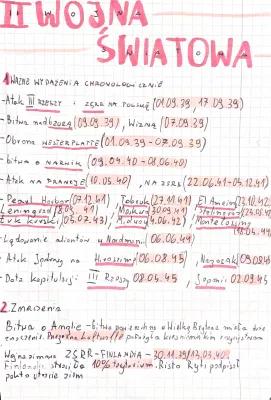 II WOJNA
ŚWIATOWA
1 WAŻNE WYDARZENIA CHRONOLOGICZNIE
-Atak III RZESZY i ZSRR NA POLSKĘ (01.09.39, 17.09.39)
-Bitwa nad bzurą (09.09.39), WIZNĄ (07.09.39)
-Obrona WESTERPLATTE (01.09.39-07.09.39)
-bitwa o NARWIK (09.04.40-08.06.40)
-Atak NA FRANCJĘ (10.05.40), NA ZSRR (22.06.41-05.12.41)
-Pearl Harbor (07.12.41), Tobruk (27.11.41) El Alamein (23.10.42)
Leningrad (8.09.41) Moskwa (30.09.41) Stalingrad
ŁUK kurski (05.07.43) Midway (4.06.42) Montecassino
(18.05.44)
-Lądowanie aliantów w Normandii (06.06.44)
-Atak Jądrowy na Hiroszimę (06.08.45), Nagasaki (09.08.45)
-Data kapitulacji III Rzeszy 08.05.45, Japonii 02.09.45
2. ZNISZCZENIA
Bitwa o Anglię - Bitwa powietrzna o Wielką Brytanię miała duże
znaczenie.
Wojna zimowa ZSRR-FINLANDIA - 30.11.39/13.03.40.
Finlandia straciła 10% terytorium. Risto Ryti podpisał
pakt o utracie ziem